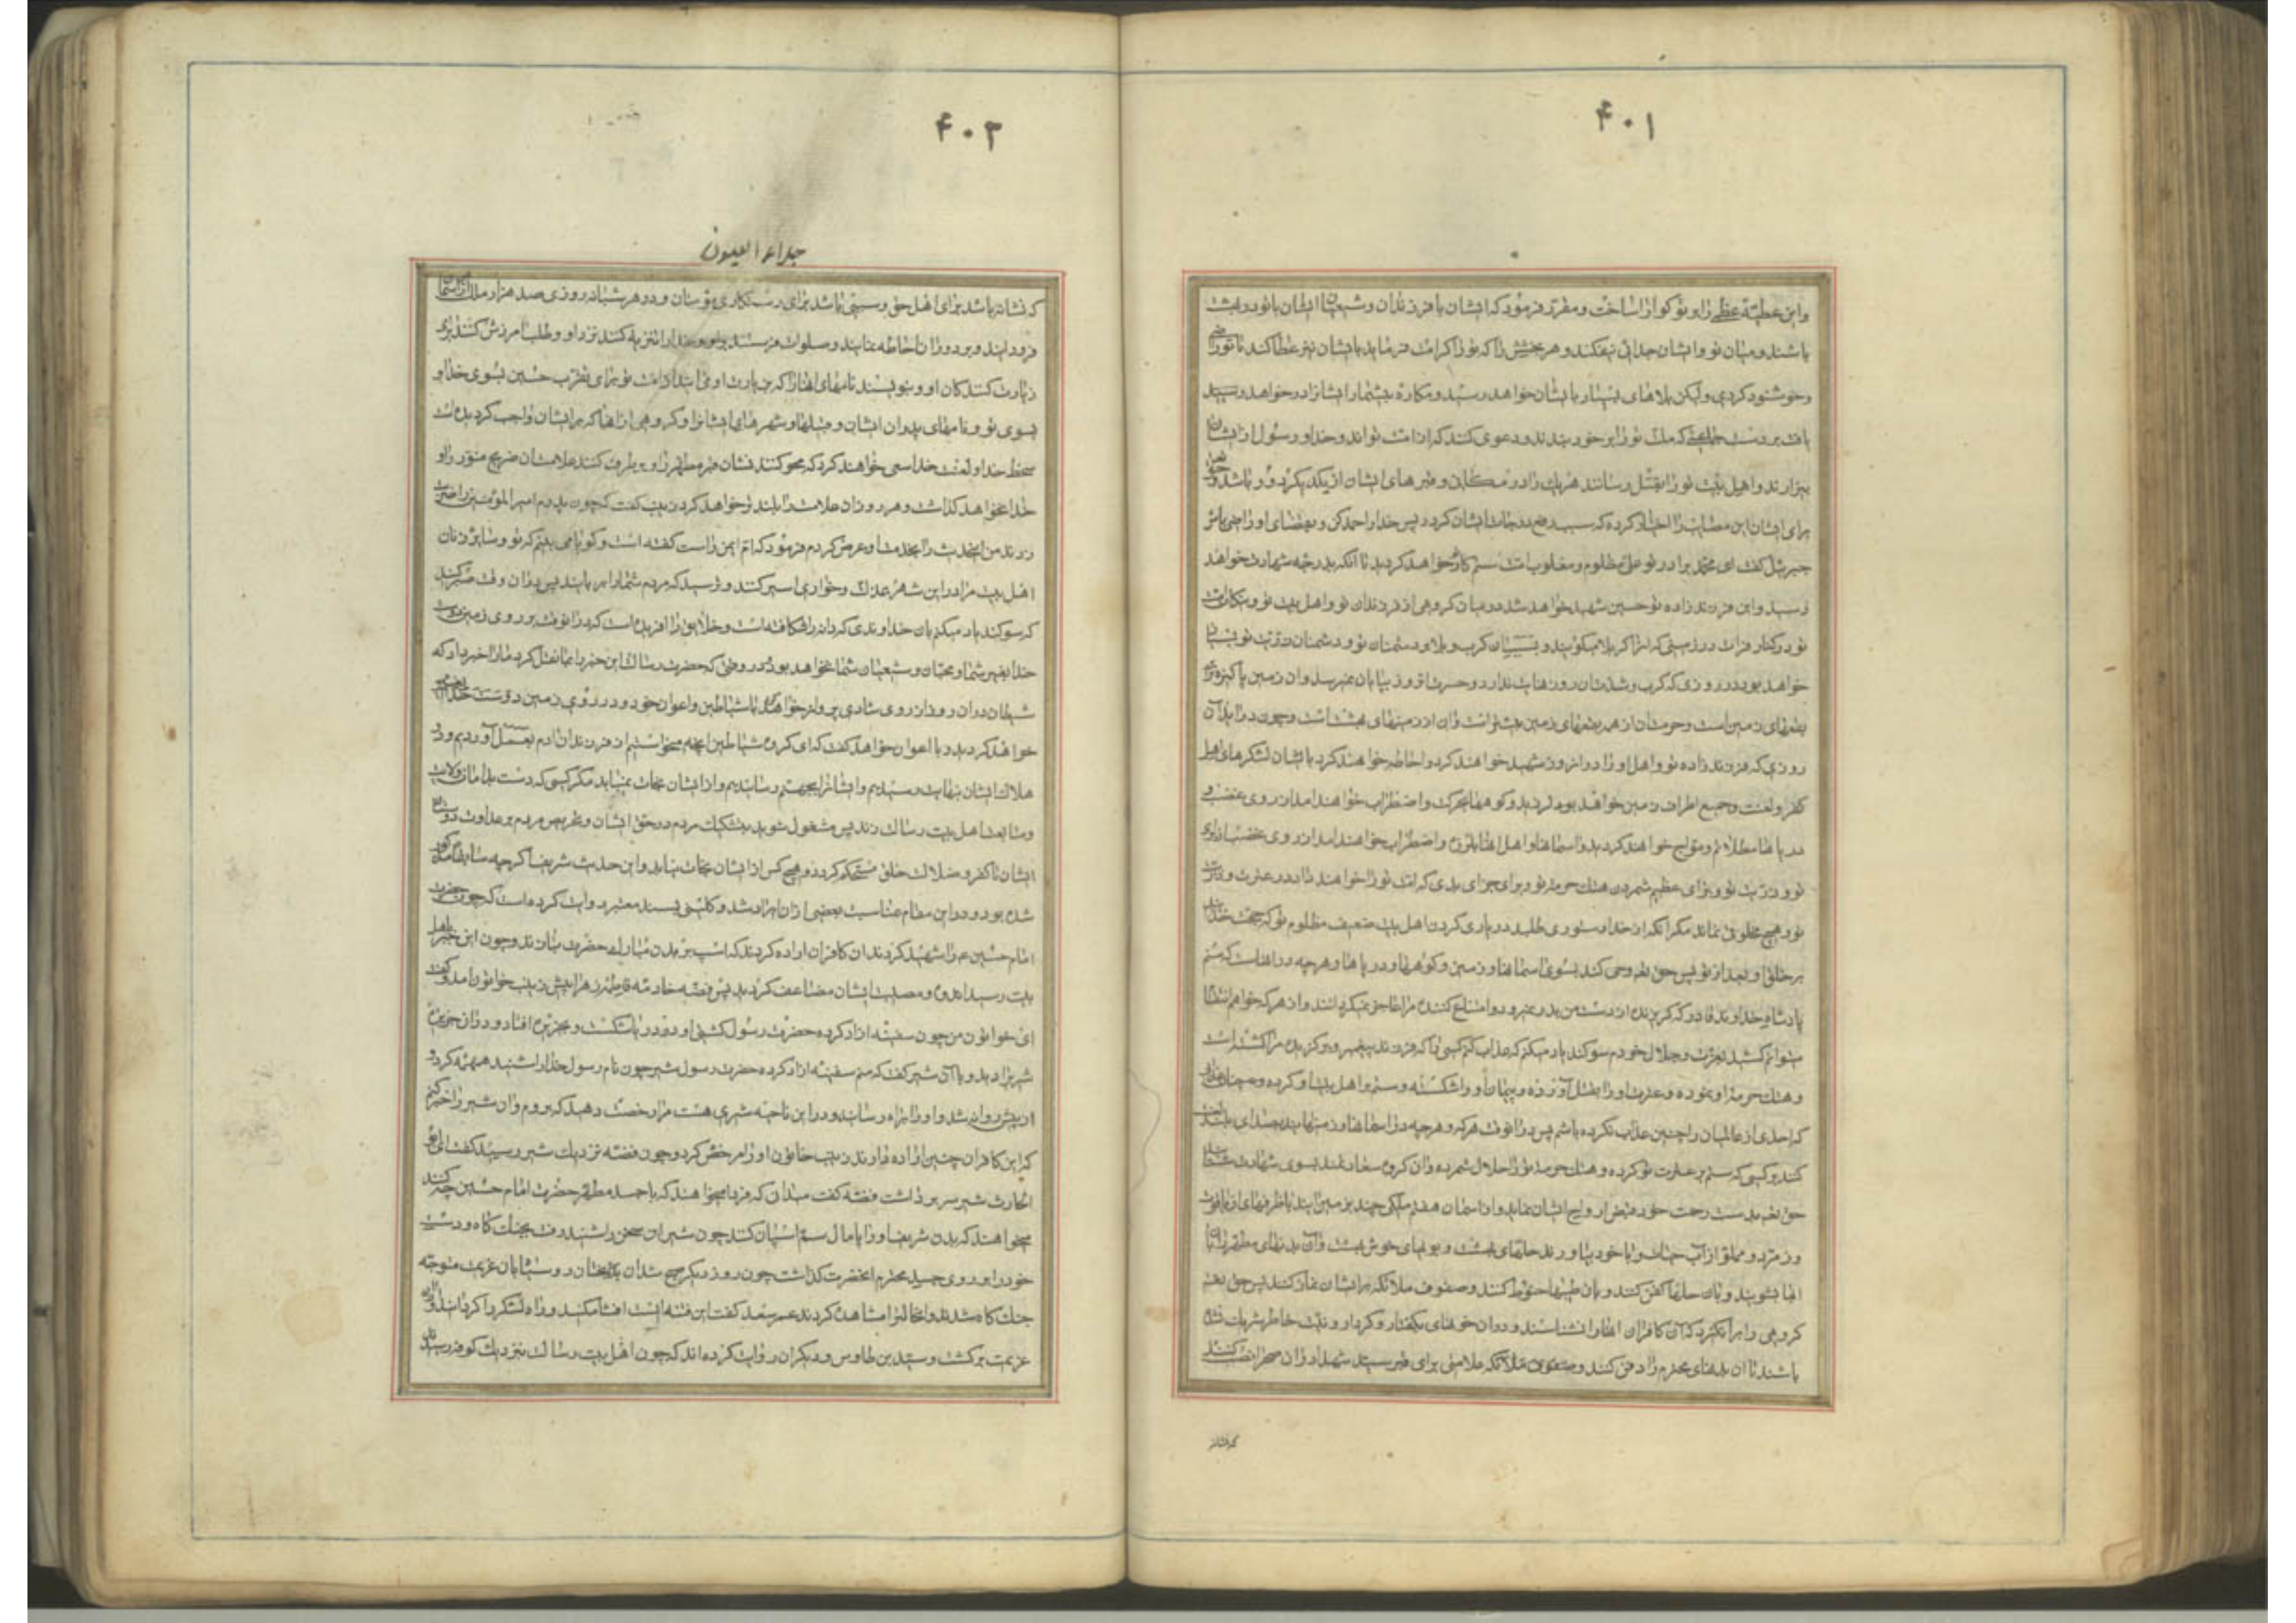 ۴۰۱
واین عطیّهٔ عظمی را بر تو گوارا ساخت و مقرّر فرمود که ایشان با فرزندان و شیعیان ایشان با تو در بهشت
باشند و میان تو و ایشان جدائی نیفکند و هر بخشش را که تو را کرامت فرماید بایشان نیز عطا کند تا تو راضی
و خوشنود گردی ولیکن بلاهای بسیار بایشان خواهد رسید و مکاره بیشمار ایشانرا در خواهد
یافت بر دست جماعتی که ملت تو را بر خود بندند و دعوی کنند که از امت تواند و خدا و رسول از ایشان
بیزارند و اهل بیت تو را بقتل رسانند هر یک را در مکانی و قبرهای ایشان از یکدیگر دور باشد و حق تعالی
برای ایشان این مصایب را اختیار کرده که سبب رفع درجات ایشان گردد پس خدا را حمد کن و بقضای او راضی باش
جبرئیل گفت ای محمد برادر تو علی مظلوم و مغلوب امت ستم کار خواهد گردید تا آنکه بدرجه شهادت خواهد
رسید و این فرزند زاده تو حسین شهید خواهد شد در میان گروهی از فرزندان تو و اهل بیت تو و نیکان امت
تو در کنار فرات در زمینی که انرا کربلا میگویند و بسبب آن کرب و بلا و دشمنان تو و دشمنان ذریّت تو بسیار
خواهد بود در روزی که کرب و شدتان روز نهایت ندارد و حسرت انروز بپایان نمیرسد و ان زمین پاکیزه‌ترین
بقعهای زمین است و حرمتان از همه بقعهای زمین بیشتر است و ان از زمینهای بهشت است و چون در اید آن
روزی که فرزند زاده تو و اهل او را در انروز شهید خواهند کرد و احاطه خواهند کرد بایشان لشکرهای اهل
کفر و لعنت و جمیع اطراف زمین خواهد بود لرزید و کوهها بحرکت و اضطراب خواهند امد از روی غضب و
دریاها متلاطم و موّاج خواهند گردید و آسمانها و اهل انها بلرزه و اضطراب خواهند امد از روی غضب از برای
تو و ذریّت تو و برای عظیم شمردن هتک حرمة تو و برای جزای بدی که امت تو را خواهند داد در عترت و ذریّت
تو و هیچ مخلوقی نماند مگر آنکه از خدا دستوری طلبد در یاری کردن اهل بیت ضعیف مظلوم تو که حجت خدایند
بر خلق او بعد از تو پس حق تعالی وحی کند بسوی اسمانها و زمین و کوهها و دریاها و هر چه در انها است که منم
پادشاه خداوند قادر که گریزنده از دست من بدر نمیرود و امتناع کننده مرا عاجز نمیگرداند و از هر که خواهم انتقام
میتوانم کشید بعزّت و جلال خودم سوگند یاد میکنم که عذاب کنم کسی را که فرزند پیغمبر و برگزیده مرا کشته است
و هتک حرمة او نموده و عترت او را بقتل آورده و پیمان او را شکسته و ستم با اهل بیت او کرده و چنان عذابی
که احدی از عالمیان را چنین عذاب نکرده باشم پس در انوقت هر که و هر چه در اسمانها و زمینها یند بصدای بلند لعنت
کنند بر کسی که ستم بر عترت تو کرده و هتک حرمة تو را حلال شمرده و ان گروه سعادتمند بسوی شهادت شتابند
حق تعالی بدست رحمت خود قبض ارواح ایشان نماید و از اسمان هفتم ملکی چند بزمین ایند با ظرفهای از یاقوت
و زمرّد و مملو از آب حیات و با خود بیاورند حلهای بهشت و بویهای خوش بهشت و آن بدنهای مطهر را باآن
ابها بشویند و بان حلها کفن کنند و بان طیبها حنوط کنند و صفوف ملائکه بر ایشان نماز کنند پس حق تعالی
گروهی را برانگیزد که آن کافران انها را نشناسند و در ان خونهای بگفتار و کردار و نیّت خاطر شریک نشده
باشند تا ان بدنهای محترم را دفن کنند و صفوف ملائکه علامتی برای قبر سیّد شهدا در ان صحرا نصب کنند
که نشانهٔ
۴۰۲
جلاء العیون
که نشانه باشد برای اهل حق و سببی باشد برای رستگاری مؤمنان و در هر شبانه روزی صد هزار ملک از اسمان
فرود ایند و بر دوران احاطه نمایند و صلوات فرستند بر او و خدا را تنزیه کنند نزد او و طلب امرزش کنند برای
زیارت کنندگان او و بنویسند نامهای انها را که بزیارت او می ایند از امت تو برای تقرّب جستن بسوی خدا و
بسوی تو و نامهای پدران ایشان و قبیلها و شهرهای ایشانرا و گروهی از انها که بر ایشان واجب گردیده است
سخط خدا و لعنت خدا سعی خواهند کرد که محو کنند نشان قبر مطهر را و برطرف کنند علامتان ضریح منوّر را و
خدا نخواهد گذاشت و هر روز ان علامت را بلند تر خواهد کرد زینب گفت که چون پدرم امیر المؤمنین را ضربت
زدند من این حدیث را بخدمت او عرض کردم فرمود که ام ایمن راست گفته است و گویا می بینم که تو و سایر زنان
اهل بیت مرا در این شهر بمذلّت و خواری اسیر کنند و ترسید که مردم شما را بربایند پس در ان وقت صبر کنید
که سوگند یاد میکنم بان خداوندی که دانه را شکافته است و خلایق را افریده است که در انوقت بر روی زمین دوست
خدا بغیر شما و محبّان و شیعیان شما نخواهد بود و در وقتی که حضرت رسالت این خبر را بما نقل کرد ما را خبر داد که
شیطان در ان روز از روی شادی پرواز خواهد کرد با شیاطین و اعوان خود و در روی زمین
خواهد گردید و با اعوان خواهد گفت که ای گروه شیاطین انچه میخواستیم از فرزندان ادم بعمل آوردیم و در
هلاک ایشان بنهایت رسیدیم و ایشانرا بجهنّم رسانیدیم و از ایشان نجات نمییابد مگر کسی که دست بدامان ولایت
و متابعت اهل بیت رسالت زند پس مشغول شوید بتشکیک مردم در حق ایشان و تحریص مردم بر عداوت دوستان
ایشان تا کفر و ضلالت خلق مستحکم گردد و هیچ کس از ایشان نجات نیابد و این حدیث شریف اگر چه سابقا مذکور
شده بود و در این مقام بمناسبت بعضی از ان ایراد شد و کلینی بسند معتبر روایت کرده است که چون حضرت
امام حسین ع را شهید کردند ان کافران اراده کردند که اسب بر بدن مبارک حضرت بتازند و چون این خبر باهل
بیت رسید اندوه و مصیبت ایشان مضاعف گردید پس فضه خادمه فاطمه زهرا پیش زینب خواتون امد و گفت
ای خواتون من چون سفینه ازاد کرده حضرت رسول کشتی او در دریا شکست و بجزیره افتاد و در ان جزیره
شیر را دید و با آن شیر گفت که منم سفینه ازاد کرده حضرت رسول شیر چون نام رسول خدا را شنید همهمه کرد و
از پیش روان شد و او را براه رسانید و در این ناحیه شیری هست مرا رخصت دهید که بروم و ان شیر را خبر کنم
که این کافران چنین اراده دارند زینب خاتون او را مرخص کرد و چون فضه نزدیک شیر رسید گفت ای ابو
الحارث شیر سر برداشت فضه گفت میدان که فردا میخواهند که با جسد مطهر حضرت امام حسین چه کنند
میخواهند که بدن شریف او را پامال سم اسبان کنند چون شیر ان سخن را شنید رفت بجنگ گاه و دست
خود را بر روی جسد محترم انحضرت گذاشت چون روز دیگر صبح شد ان بدبختان رو سیاهان عزیمت متوجّه
جنگ گاه شدند و انحال را مشاهده کردند عمر سعد گفت این فتنه ایست افشا مکنید و راه لشکر را گردانید و از ان
عزیمت برگشت و سیّد بن طاوس و دیگران روایت کرده اند که چون اهل بیت رسالت نزدیک کوفه رسیدند